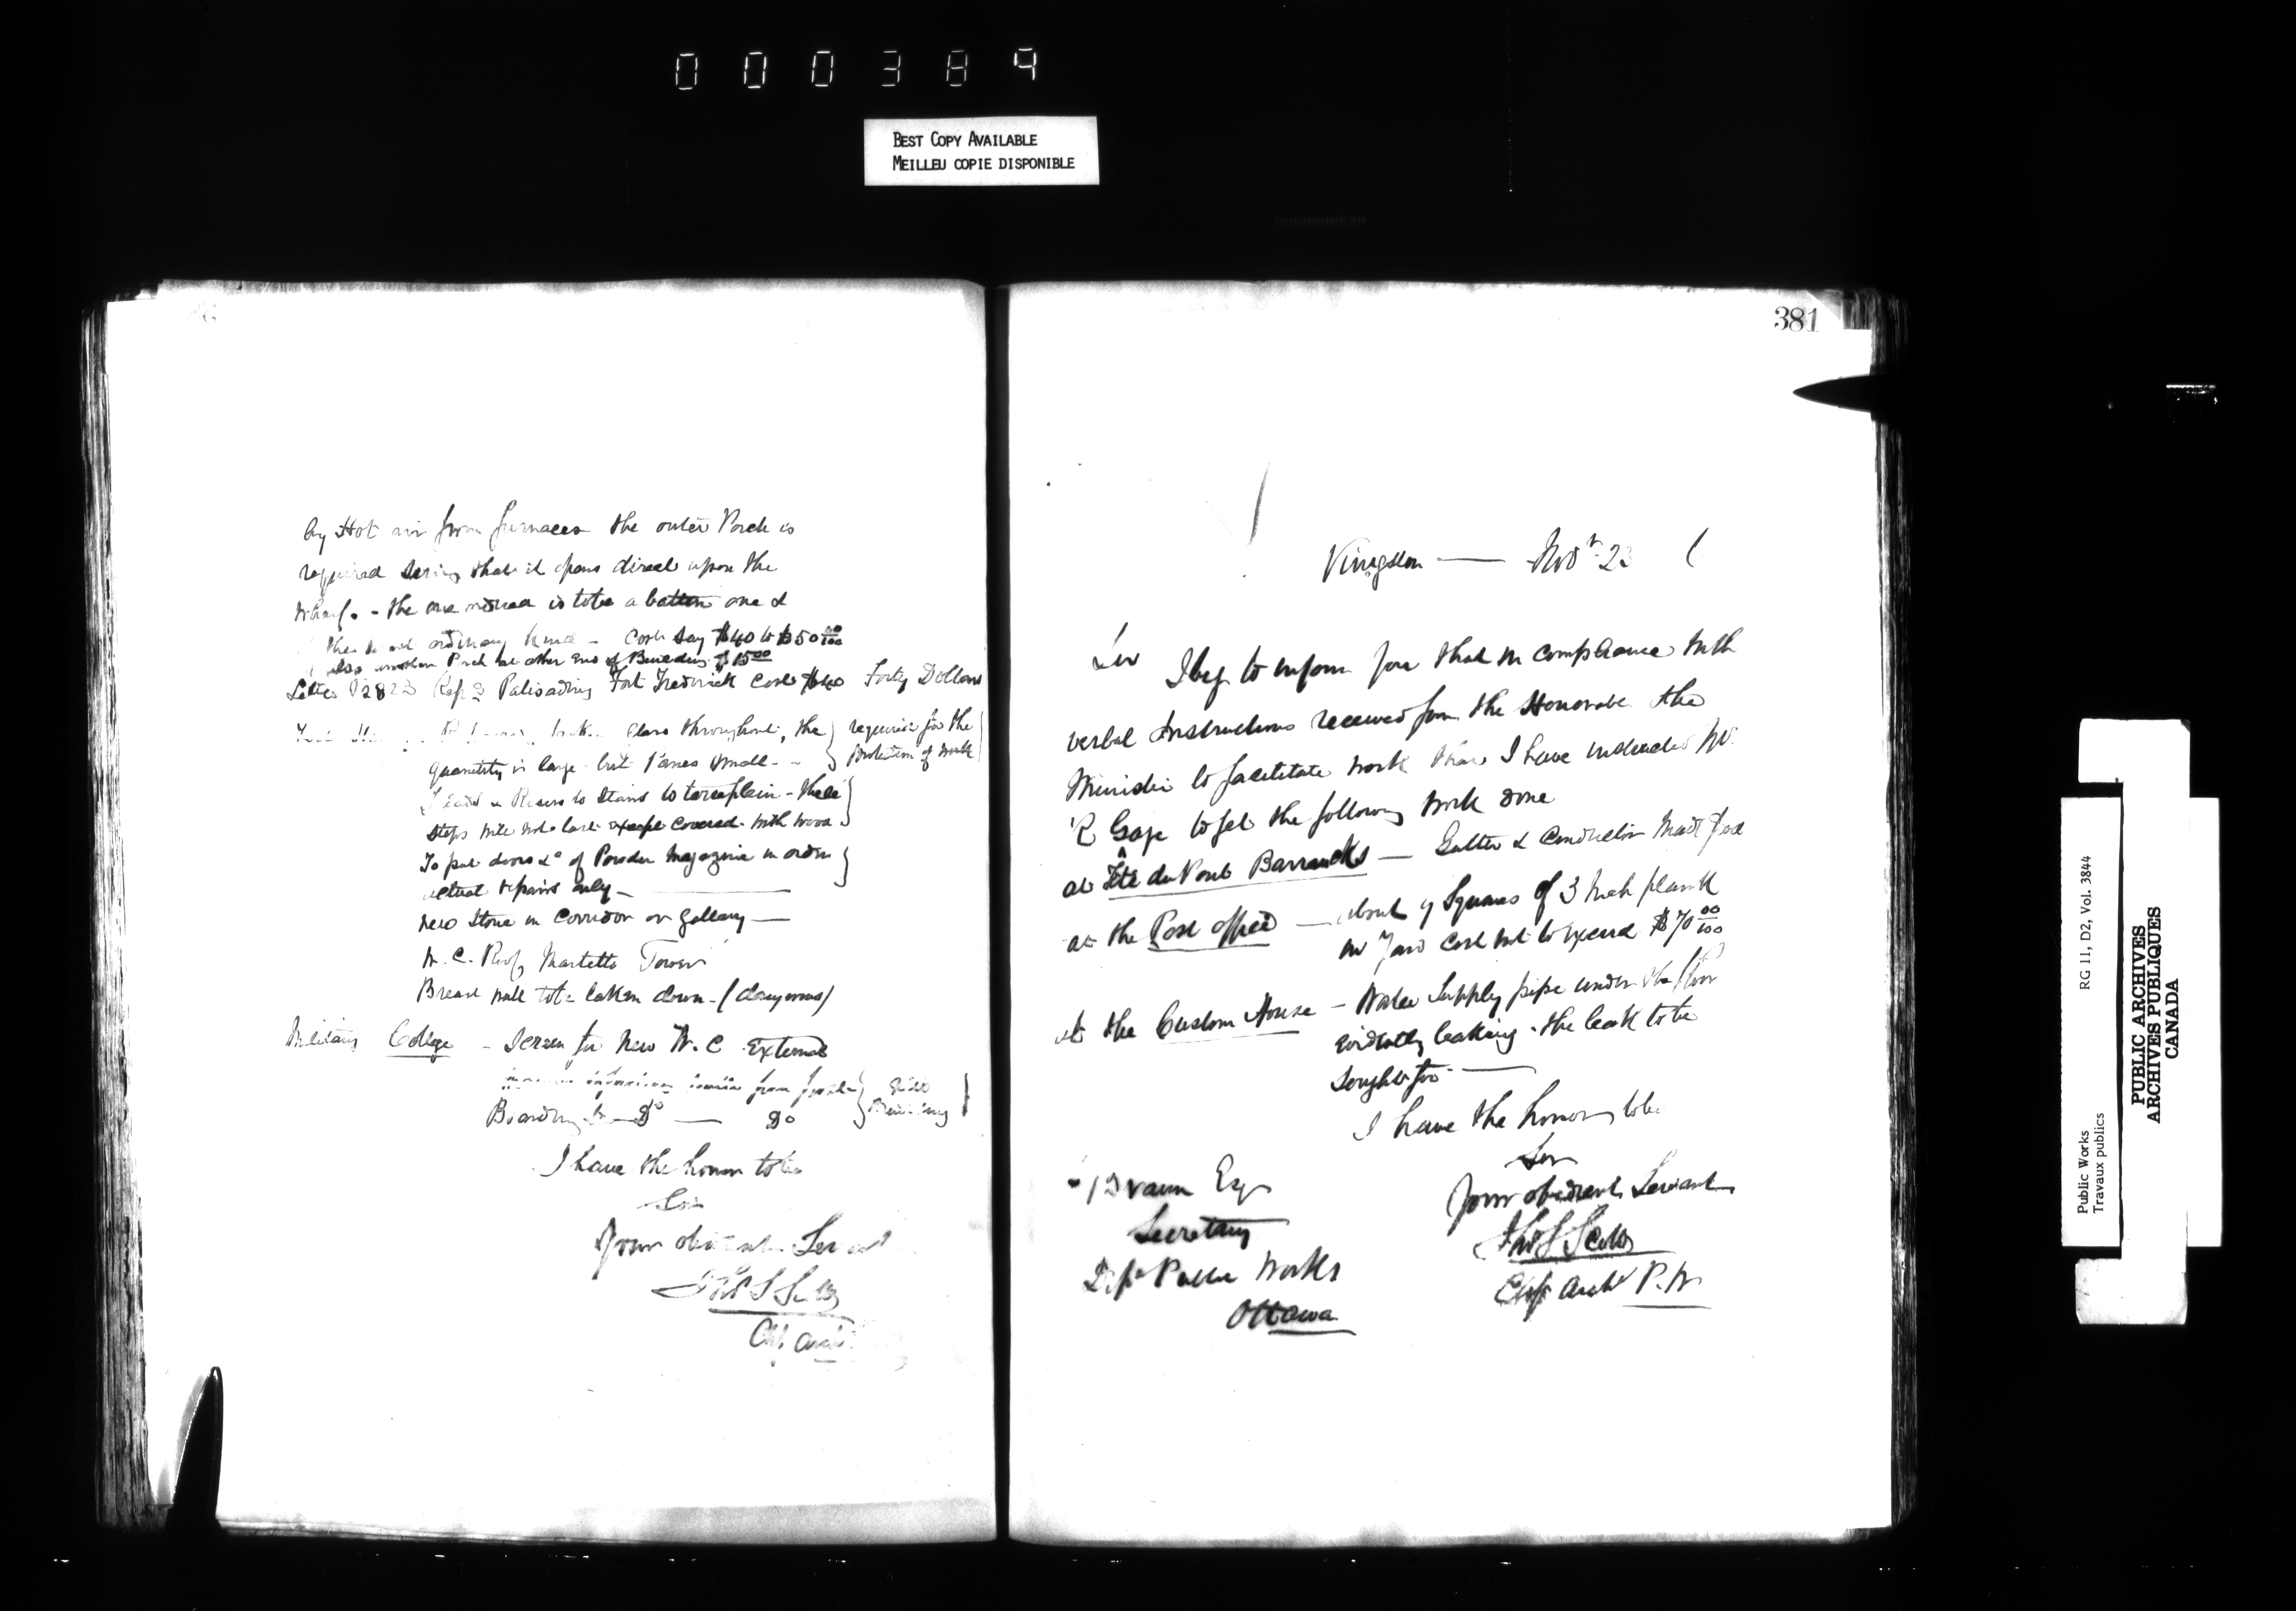 000389
BEST COPY AVAILABLE
MEILLEU COPIE DISPONIBLE
by Hot air from furnaces the outer Porch is
required seeing that it opens direct upon the
Wharf. - the one is to be a batten one &
ordinary kind - Cost say $40 to $50 00/100
also another Porch at other End of Building $15 00
Letter 12823 Palisading Fort Frederick Cost $40 Forty Dollars
Glass throughout, the } required for the
quantity is large but Panes small - } Protection of work
& Risers to Stairs to terreplein - these
steps will not last except covered with wood
To put doors &c of Powder Magazine in order
actual repairs only -
New Stove in Corridor or gallery -
W. C. Roof, Martello Tower
Breast wall to be taken down - (dangerous)
Military College - Screen for New W. C External
from
Boarding Do - Do
I have the honor to be
Sir
Your obedient Servant
Thos S Scott
Chf Arch
381
Kingston - Novr 23
Sir
I beg to inform you that in compliance with
verbal Instructions received from the Honorable the
Minister to facilitate work that I have instructed Mr.
R Gage to get the following work done
at Tête du Pont Barracks - Gutter & Conductor
at the Post Office - about 9 Squares of 3 Inch plank
in Yard Cost not to exceed $70 00/100
At the Custom House - Water Supply pipe under the floor
evidently leaking - the leak to be
sought for -
I have the honor to be
Sir
Your obedient Servant
Thos S Scott
Chf Archt P. W
Braun Esqr
Secretary
Dept Public Works
Ottawa
Public Works RG 11, D2, Vol. 3844
Travaux publics
PUBLIC ARCHIVES
ARCHIVES PUBLIQUES
CANADA